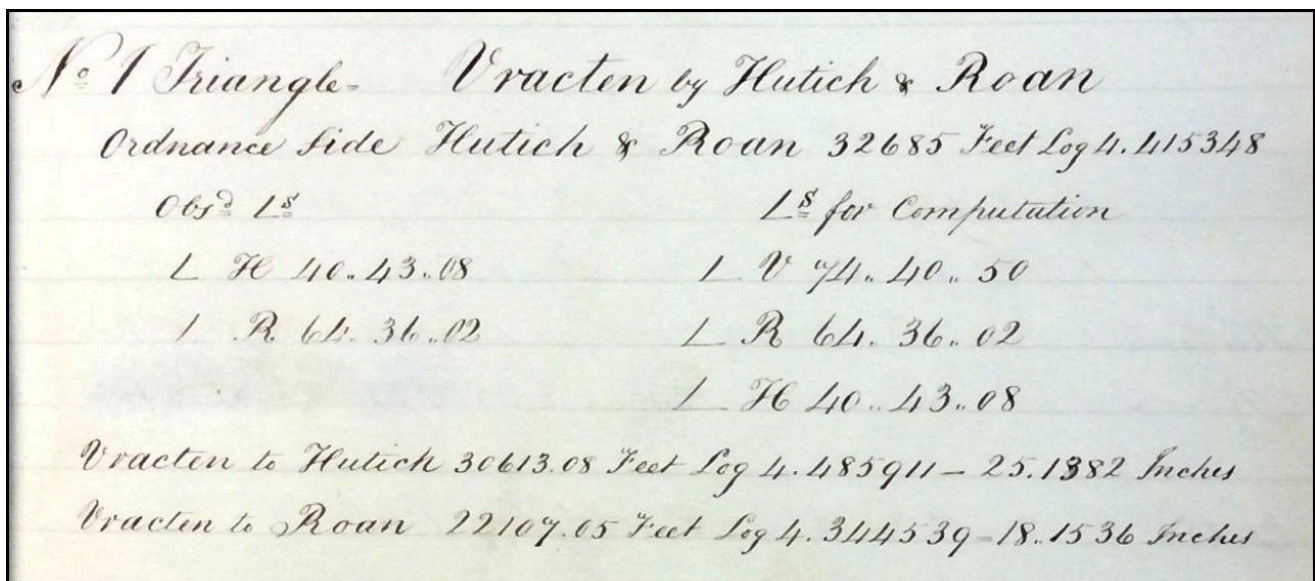 Nº 1 Triangle - Vracten by Hutich & Roan
Ordnance Side Hutich & Roan 32685 Feet Log 4.415348
Obsd Ls Ls for Computation
L H 40..43..08 L V 74..40..50
L R 64..36..02 L R 64..36..02
L H 40..43..08
Vracten to Hutich 30613.08 Feet Log 4.485911 – 25.1382 Inches
Vracten to Roan 22107.05 Feet Log 4.344539 – 18.1536 Inches